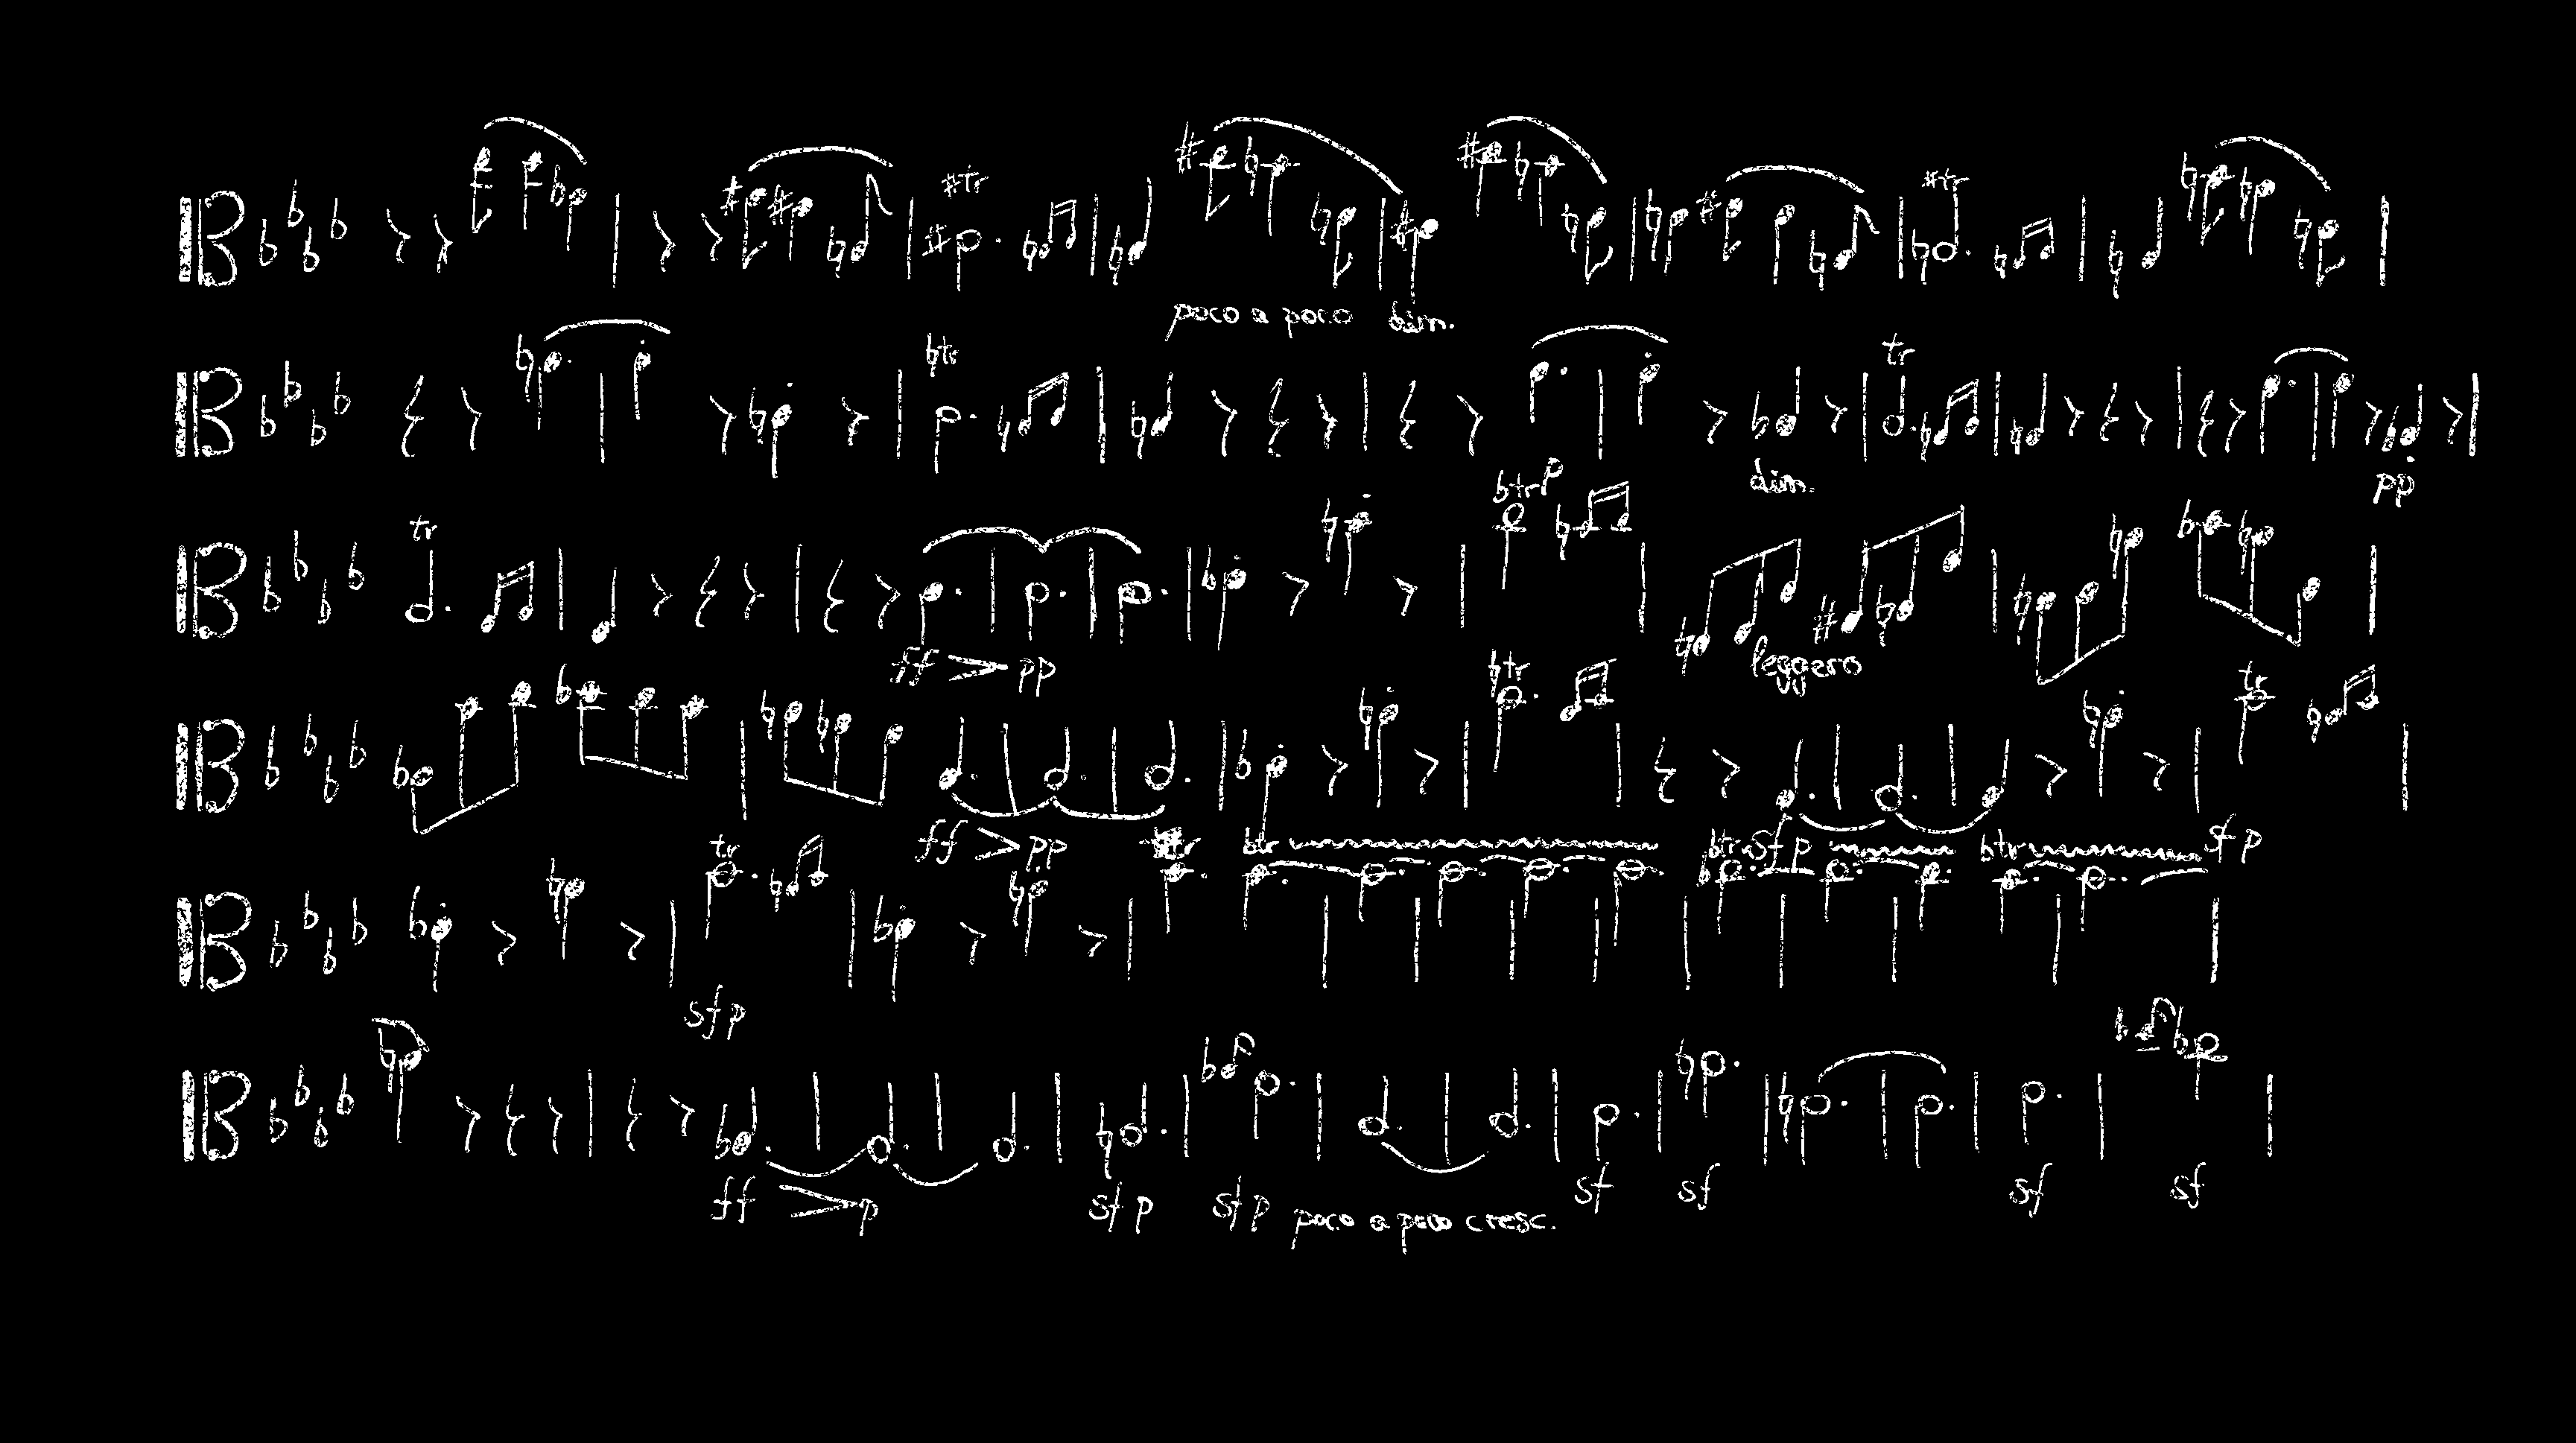 #tr #tr
poco a poco dim.
♮tr tr
dim. pp
tr ♭tr p
ff > pp leggero
♮tr tr
ff > pp sfp
tr tr ♭tr ♭tr ♭tr
sfp sfp
ff > p sfp sfp poco a poco cresc. sf sf sf sf